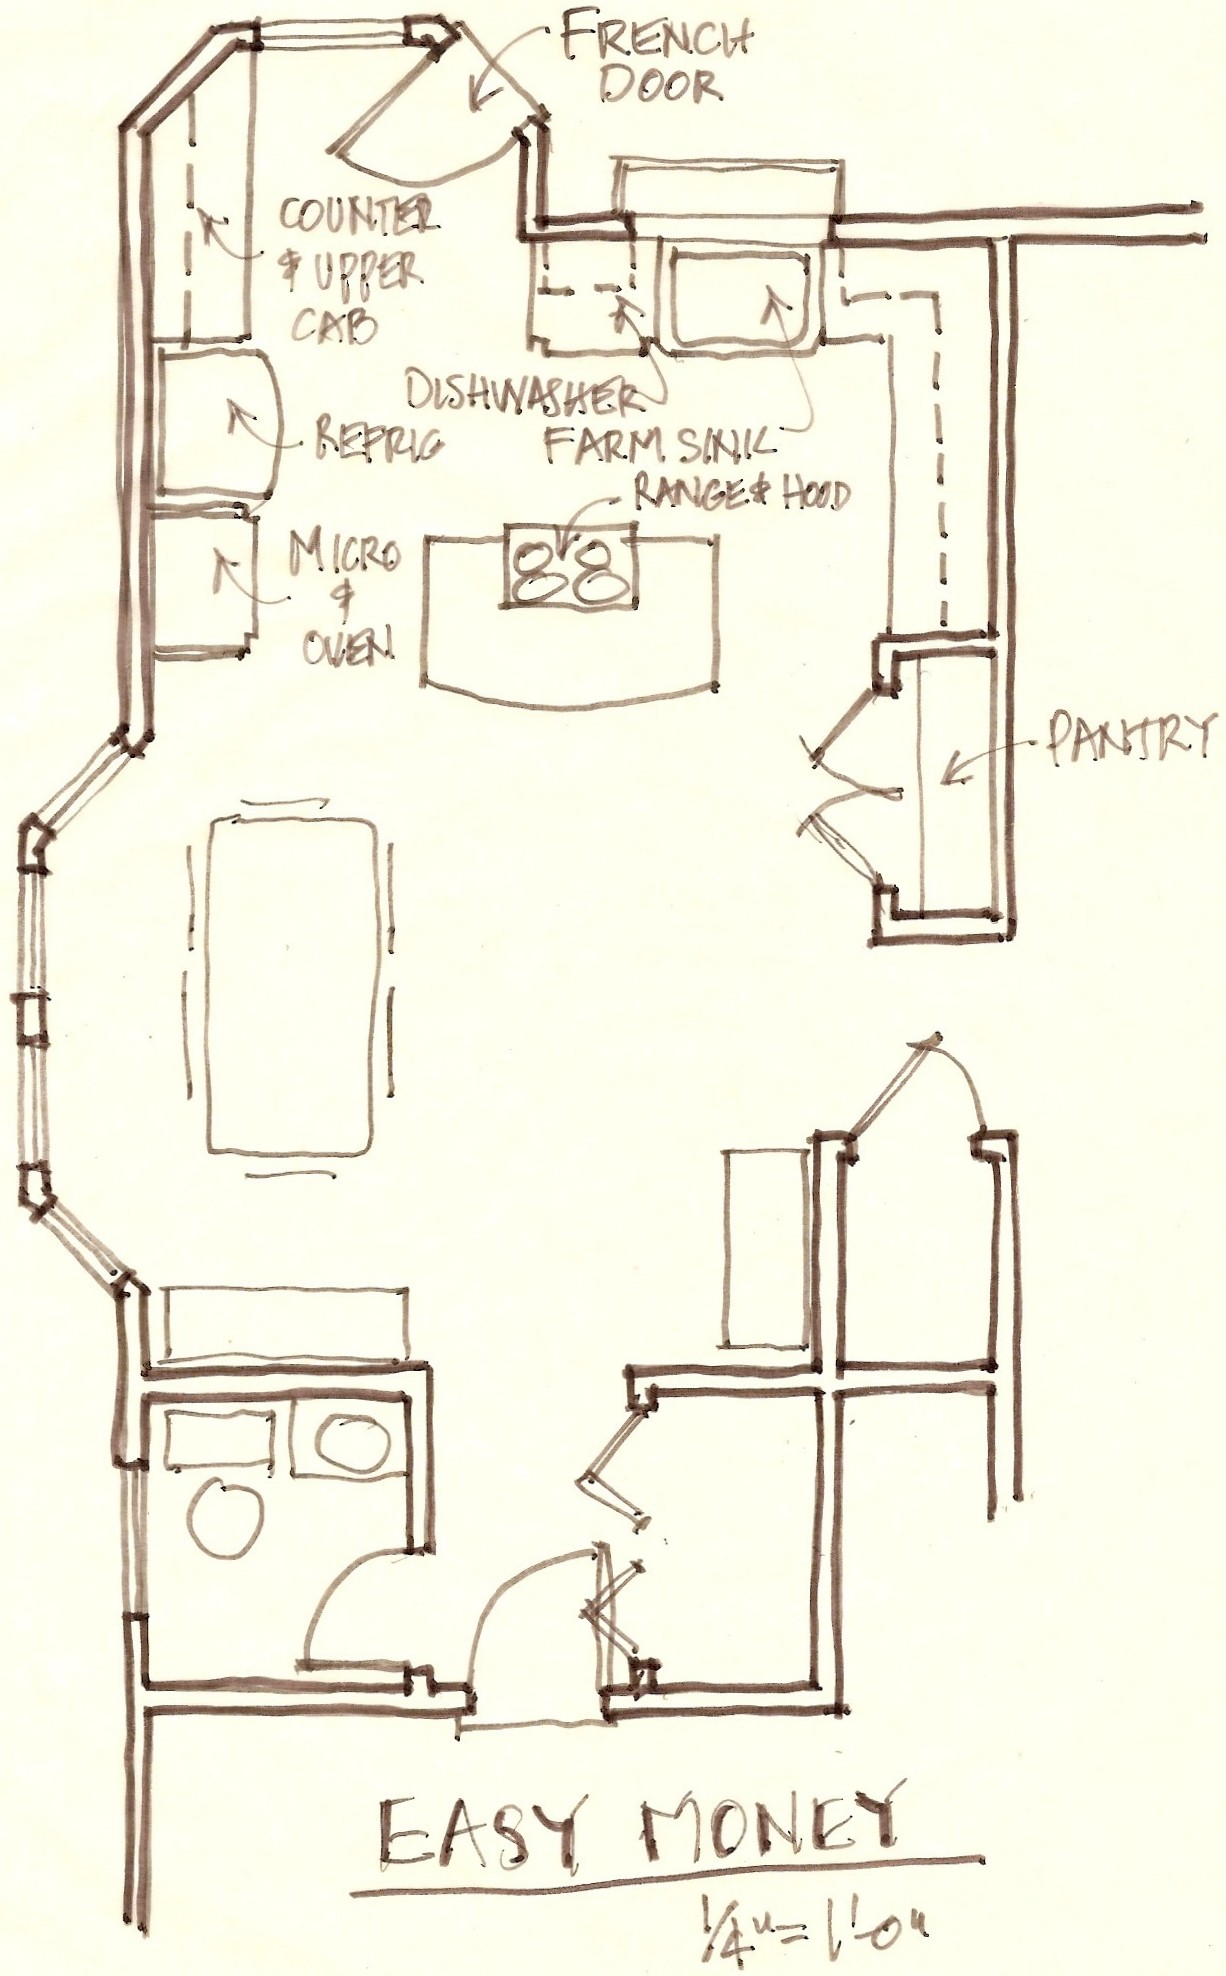 FRENCH
DOOR
COUNTER
& UPPER
CAB
DISHWASHER
REFRIG
FARM SINK
RANGE & HOOD
MICRO
&
OVEN
PANTRY
EASY MONEY
1/4" = 1'-0"